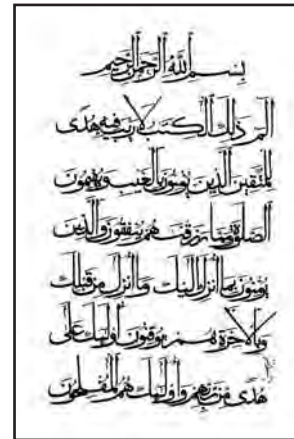 بسم الله الرحمن الرحيم
الم ذلك الكتب لا ريب فيه هدى
للمتقين الذين يؤمنون بالغيب ويقيمون
الصلوة ومما رزقنهم ينفقون والذين
يؤمنون بما أنزل إليك وما أنزل من قبلك
وبالآخرة هم يوقنون أولئك على
هدى من ربهم وأولئك هم المفلحون